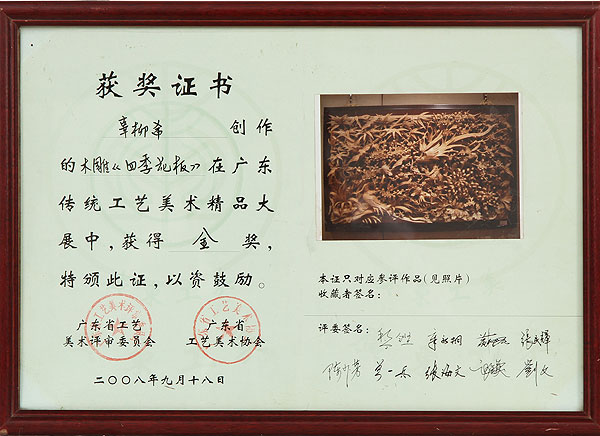 获奖证书
辜柳希 创作
的木雕《四季花板》在广东
传统工艺美术精品大
展中，获得 金 奖，
特颁此证，以资鼓励。
广东省工艺
美术评审委员会
广东省
工艺美术协会
二〇〇八年九月十八日
本证只对应参评作品(见照片)
收藏者签名：
评委签名：